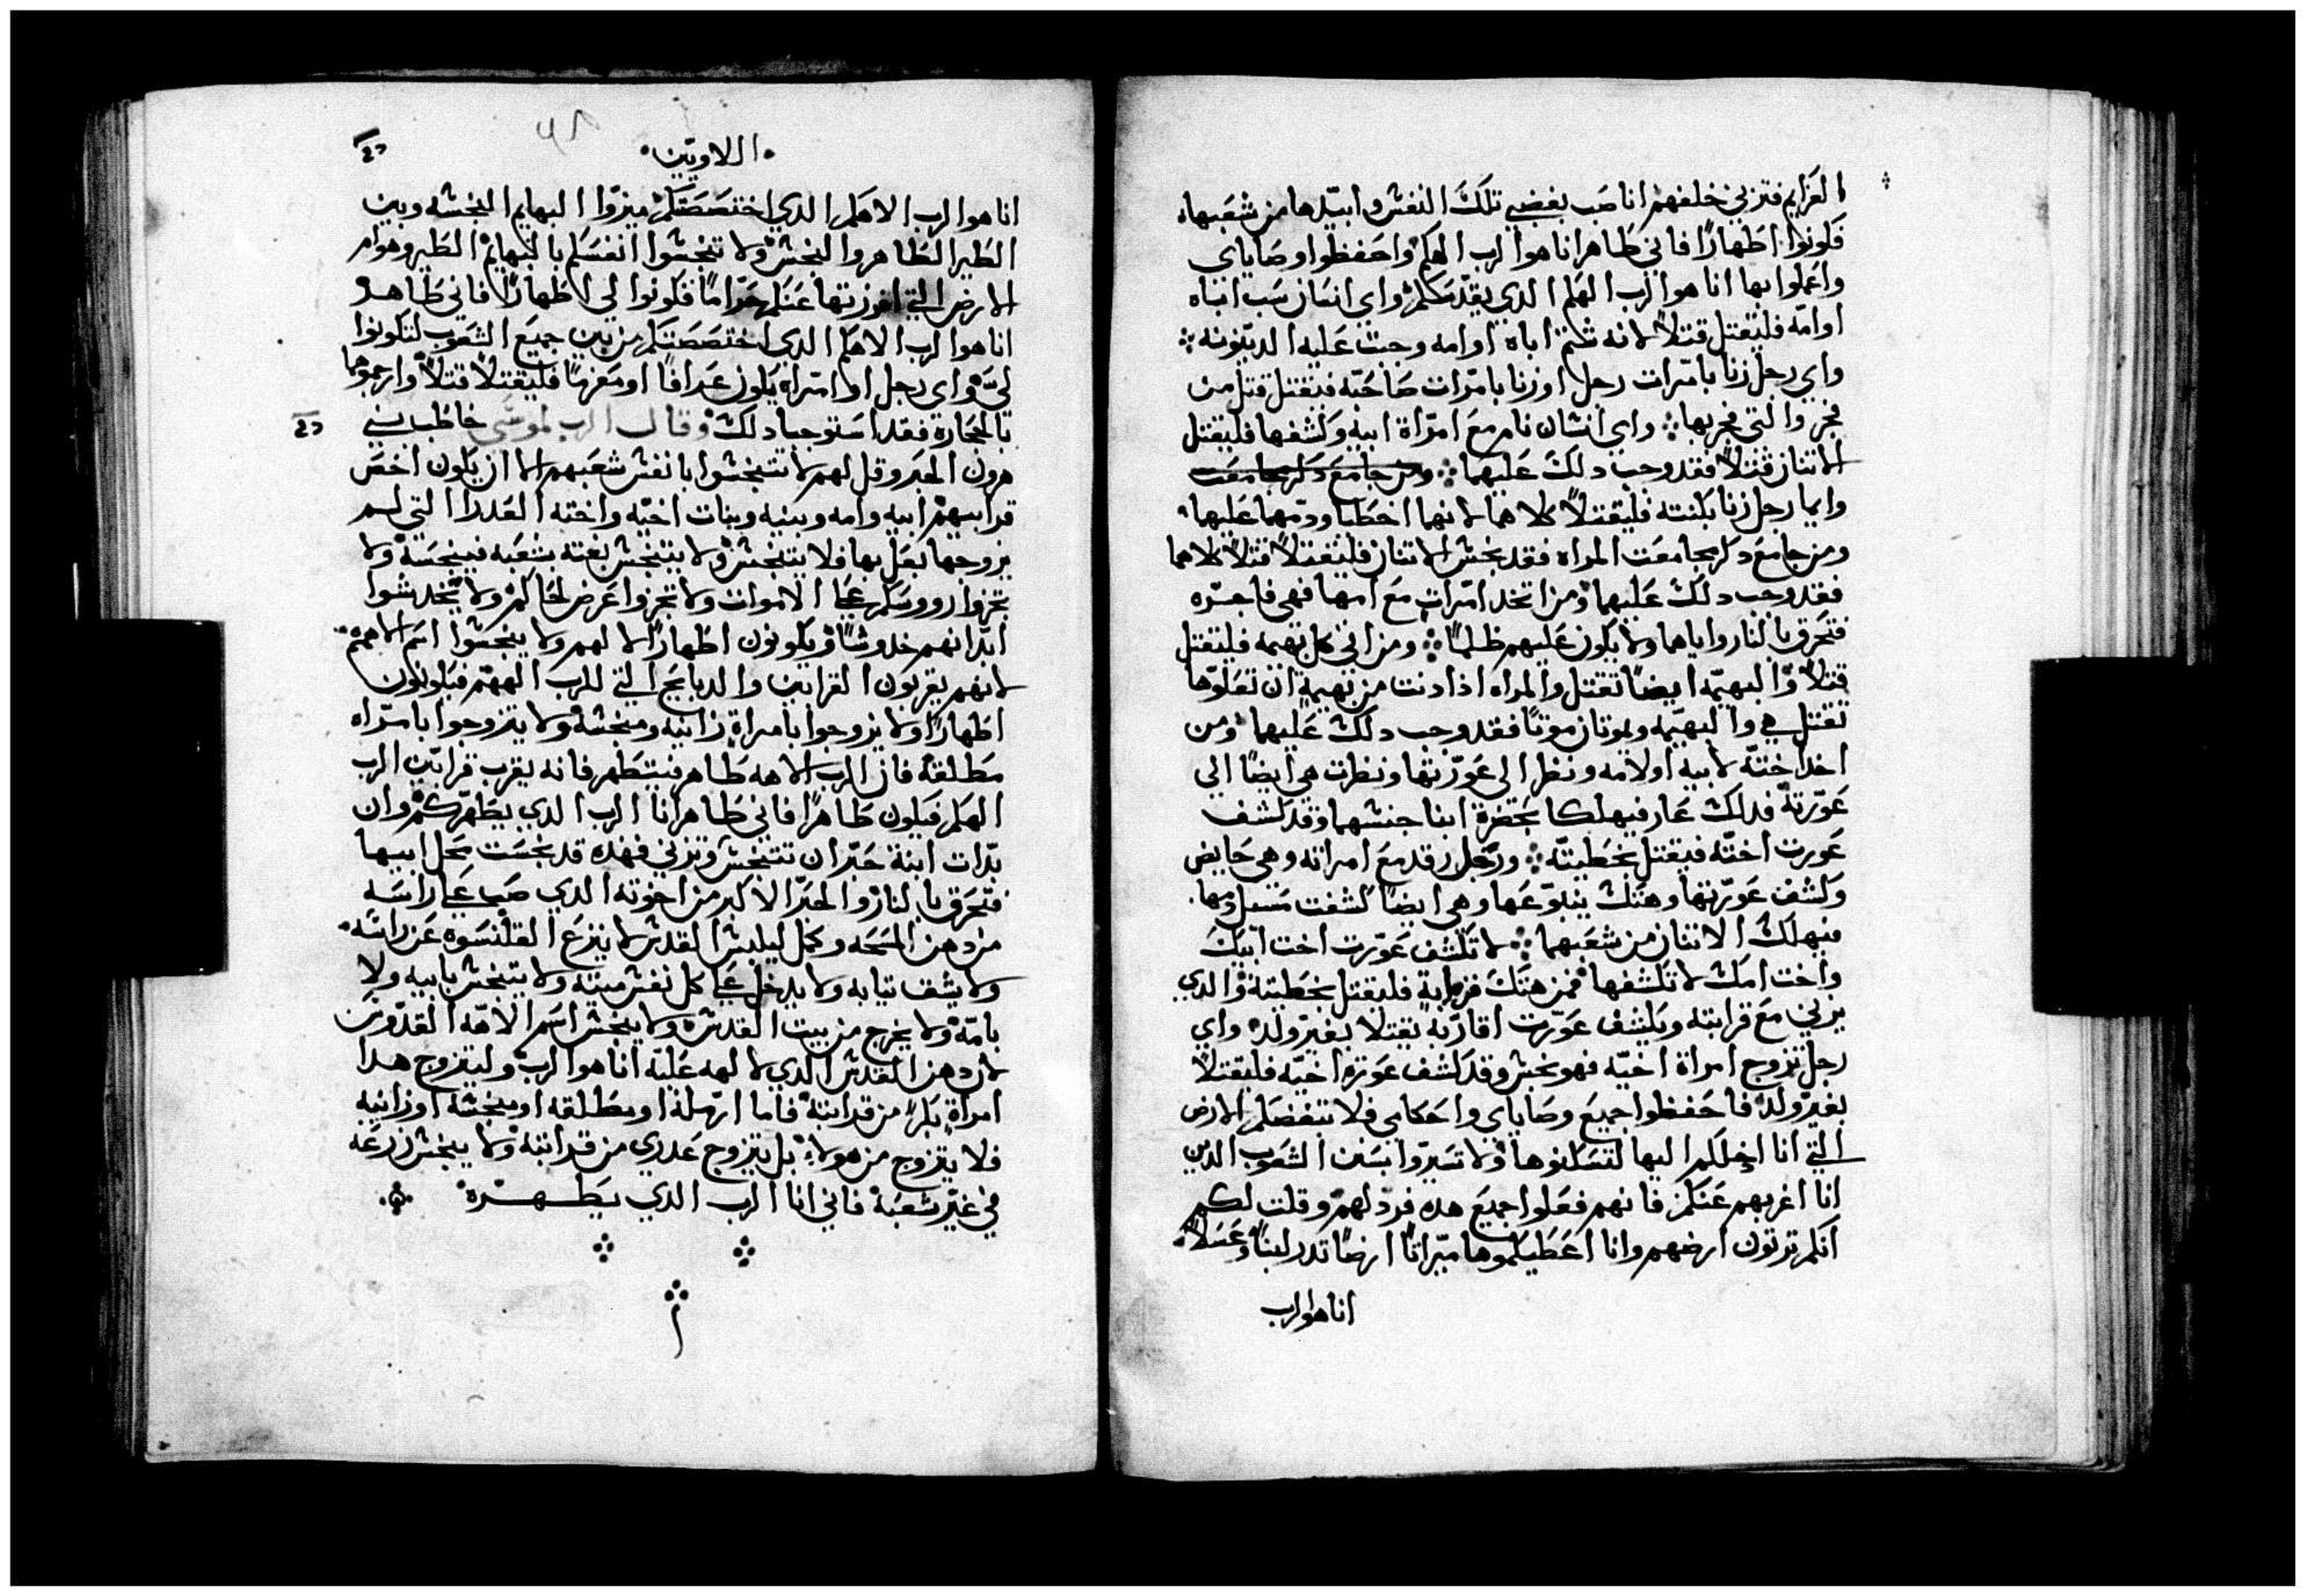 العزايم فتزني خلفهم انا صب بغضبي تلك النفس وابيدها من شعبها
فكونوا اطهارًا فاني طاهر انا هو الرب الهكم واحفظوا وصاياي
واعملوا بها انا هو الرب الهكم الدي يقدسكم واي انسان سب اباه
او امه فليقتل قتلاً لانه شتم اباه او امه وجبت عليه الدينونه
واي رجل زنا بامرات رجل او زنا بامرات صاحبه فيقتل قتل من
فجر والتي فجر بها واي انسان نام مع امراة ابيه وكشفها فليقتل
الاتنان قتلاً فقد وجب دلك عليهما ومن جامع دكر بجامعت
وايما رجل زنا بكنته فليقتلاً كلاهما لانهما اخطيا ودمهما عليهما
ومن جامع دكر بجامعت المراه فقد نجس الاتنان فليقتلاً قتلاً كلاهما
فقد وجب دلك عليهما ومن اتخد امرات مع امها فهي فاجره
فتحرق بالنار واياهما ولا يكون عليهم ظلمًا ومن اتى كل بهيمه فليقتل
قتلاً والبهيمه ايضًا تقتل والمراه اذا دنت من بهيمة ان تعلوها
تقتل هي والبهيمه ويموتان موتًا فقد وجب دلك عليهما ومن
اخد اختة لابيه او لامه ونظر الى عورتها ونظرت هي ايضًا الي
عورته فدلك عار فيهلكا بحضرة ابنا جنسهما وقد كشف
عورت اختة فيقتل بخطيته ورجل رقد مع امراته وهي حايض
وكشف عورتها وهتك ينبوعها وهي ايضًا كشفت مسيل دمها
فيهلك الاتنان من شعبهما لا تكشف عورت اخت ابيك
واخت امك لا تكشفها فمن هتك قرابة فليقتل بخطيتة والدي
يزني مع قرابته ويكشف عورت اقاربه يقتلا بغير ولد واي
رجل تزوج امراة اخيه فهو نجس وقد كشف عورة اخيه فليقتلا
بغير ولد فاحفظوا جميع وصاياي واحكامي فلا تبغضكم الارض
التي انا ادخلكم اليها لتسكنوها ولا تسيروا بسنن الشعوب الدين
انا اغربهم عنكم فانهم فعلوا جميع هده فردلهم وقلت لكم
انكم ترتون ارضهم وانا اعطيكموها ميراتًا ارضًا تدر لبنًا وعسلاً
انا هو الرب
اللاويين
انا هو الرب الاهكم الدي اختصصتكم ميزوا البهايم النجسه وبين
الطير الطاهر والنجس ولا تنجسوا انفسكم بالبهايم الطير وهوام
الارض التي افرزتها عنكم حرامًا فكونوا لي اطهارًا فاني طاهر
انا هو الرب الاهكم الدي اختصصتكم من بين جميع الشعوب لتكونوا
لي واي رجل او امراه يكون عدافًا او معزمًا فليقتلاً قتلاً وارجموهما
بالحجارة فقد استوجبا دلك وقال الرب لموسى خاطب بني
هرون الحبر وقل لهم لا تتنجسوا بانفس شعبهم الا ان يكون اخص
قرابيهم ابيه وامه وبنيه وبنات اخيه واخته العدرا التي لم
يزوجها بعل بها فلا يتنجس ولا يتنجس بغته بشعبه فينجسه ولا
تجزوا رووسكم على الاموات ولا تجزوا عرض لحاكم ولا تخدشوا
ابدانهم خدوشًا ويكونون اطهارًا لالههم ولا ينجسوا اسم الاههم
لانهم يقربون القرابين والدبايح التي للرب الههم فيكونون
اطهارًا ولا يزوجوا بامراة زانيه ومنجسه ولا يتزوجوا بامراه
مطلقه فان الرب الاهه طاهر فيتطهر فانه يقرب قرابين الرب
الهكم فيكون طاهرًا فاني طاهر انا الرب الدي يطهركم وان
بدات ابنة حبر ان تتنجس وتزني فهده قد نجست محل ابيها
فتحرق بالنار والحبر الاكبر من اخوته الدي صب على راسه
من دهن المسحه وكمل ليلبس القدس لا ينزع القلنسوه عن راسه
ولا يشف تيابه ولا يدخل على كل نفس ميته ولا يتنجس بابيه ولا
بامه ولا يخرج من بيت القدس ولا ينجس اسم الاهه القدوس
لان دهن القدس الدي لالهه عليه انا هو الرب وليتزوج هدا
امراة بكر من قرابته فاما ارملة او مطلقه او منجسه او زانيه
فلا يتزوج من هولاء بل يتزوج عدري من قرابته ولا ينجس زرعه
في غير شعبه فاني انا الرب الدي يطهره